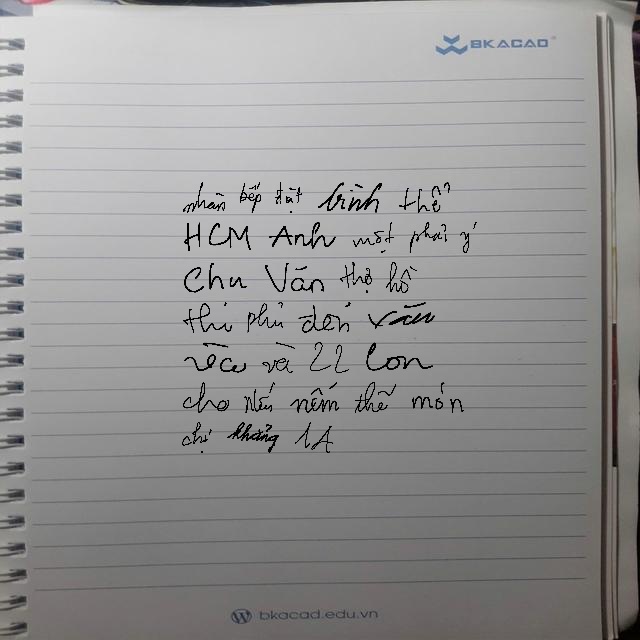 BKACAD
nhân bếp đặt bình thể
HCM Anh một phải ý
Chu Văn thọ hồ
thi phủ đến văn
và 22 con
cho nếm thế món
chị khẳng 1A
bkacad.edu.vn